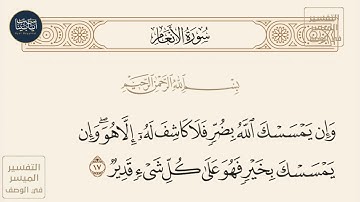 سُورَةُ الأَنْعَام
التفسير
الميسر
في الوصف
بِسْمِ اللَّهِ الرَّحْمَٰنِ الرَّحِيمِ
وَإِن يَمْسَسْكَ ٱللَّهُ بِضُرٍّ فَلَا كَاشِفَ لَهُۥٓ إِلَّا هُوَ ۖ وَإِن
يَمْسَسْكَ بِخَيْرٍ فَهُوَ عَلَىٰ كُلِّ شَىْءٍ قَدِيرٌ ١٧
التفسير
الميسر
في الوصف